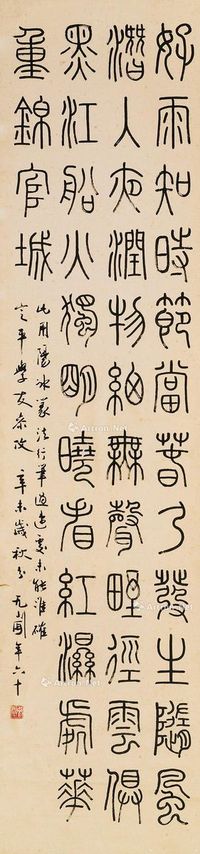 好雨知時節當春乃發生隨風
潛入夜潤物細無聲野徑雲俱
黑江船火獨明曉看紅濕處華
重錦官城
此用陽冰篆法行筆過速處未能準確
平學友 辛未歲秋分 年六十
Artron.Net